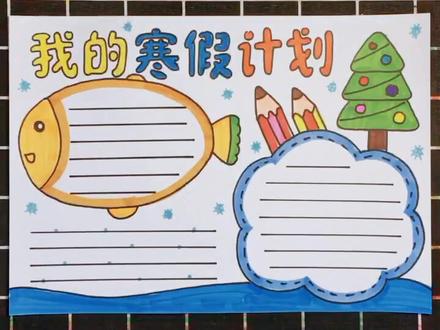 我的寒假计划